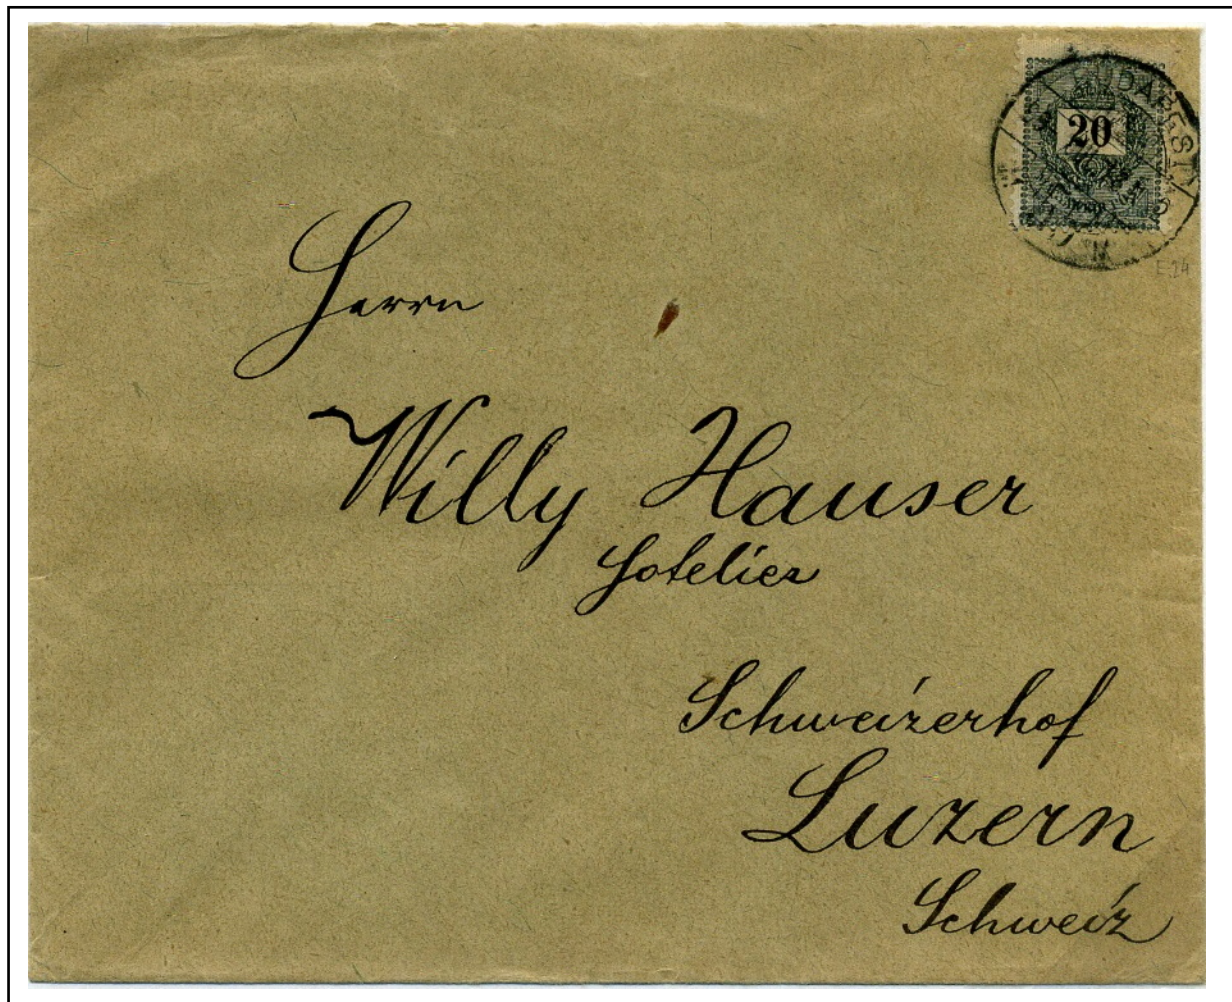 BUDAPEST
20
E.24
Herrn
Willy Hauser
Hotelier
Schweizerhof
Luzern
Schweiz